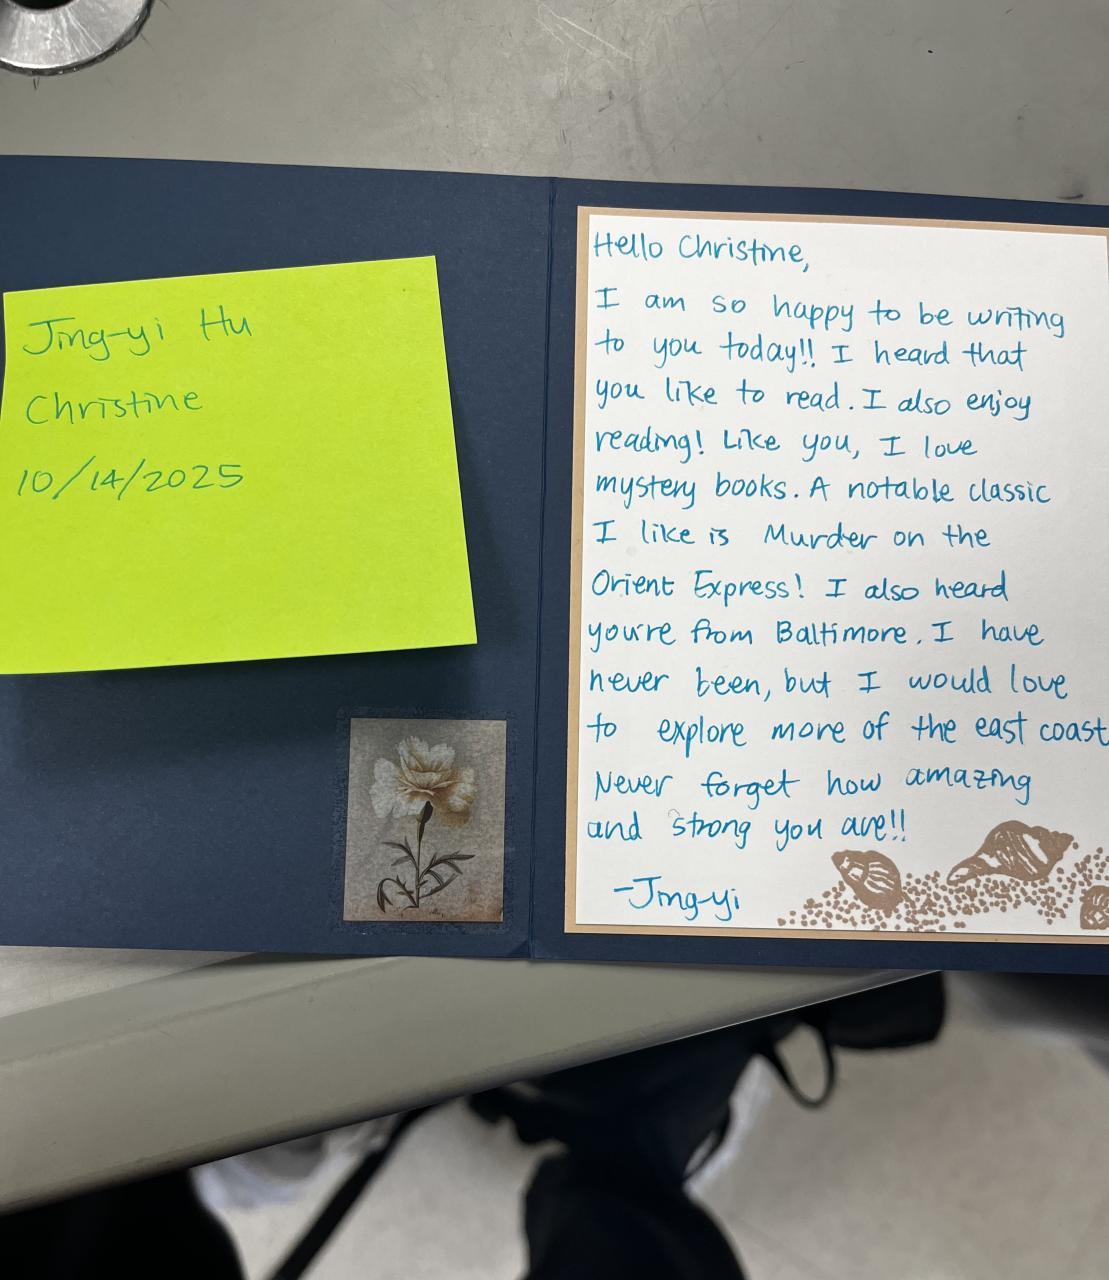 Jing-yi Hu
Christine
10/14/2025
Hello Christine,
I am so happy to be writing
to you today!! I heard that
you like to read. I also enjoy
reading! Like you, I love
mystery books. A notable classic
I like is Murder on the
Orient Express! I also heard
you're from Baltimore. I have
never been, but I would love
to explore more of the east coast
Never forget how amazing
and strong you are!!
-Jing-yi